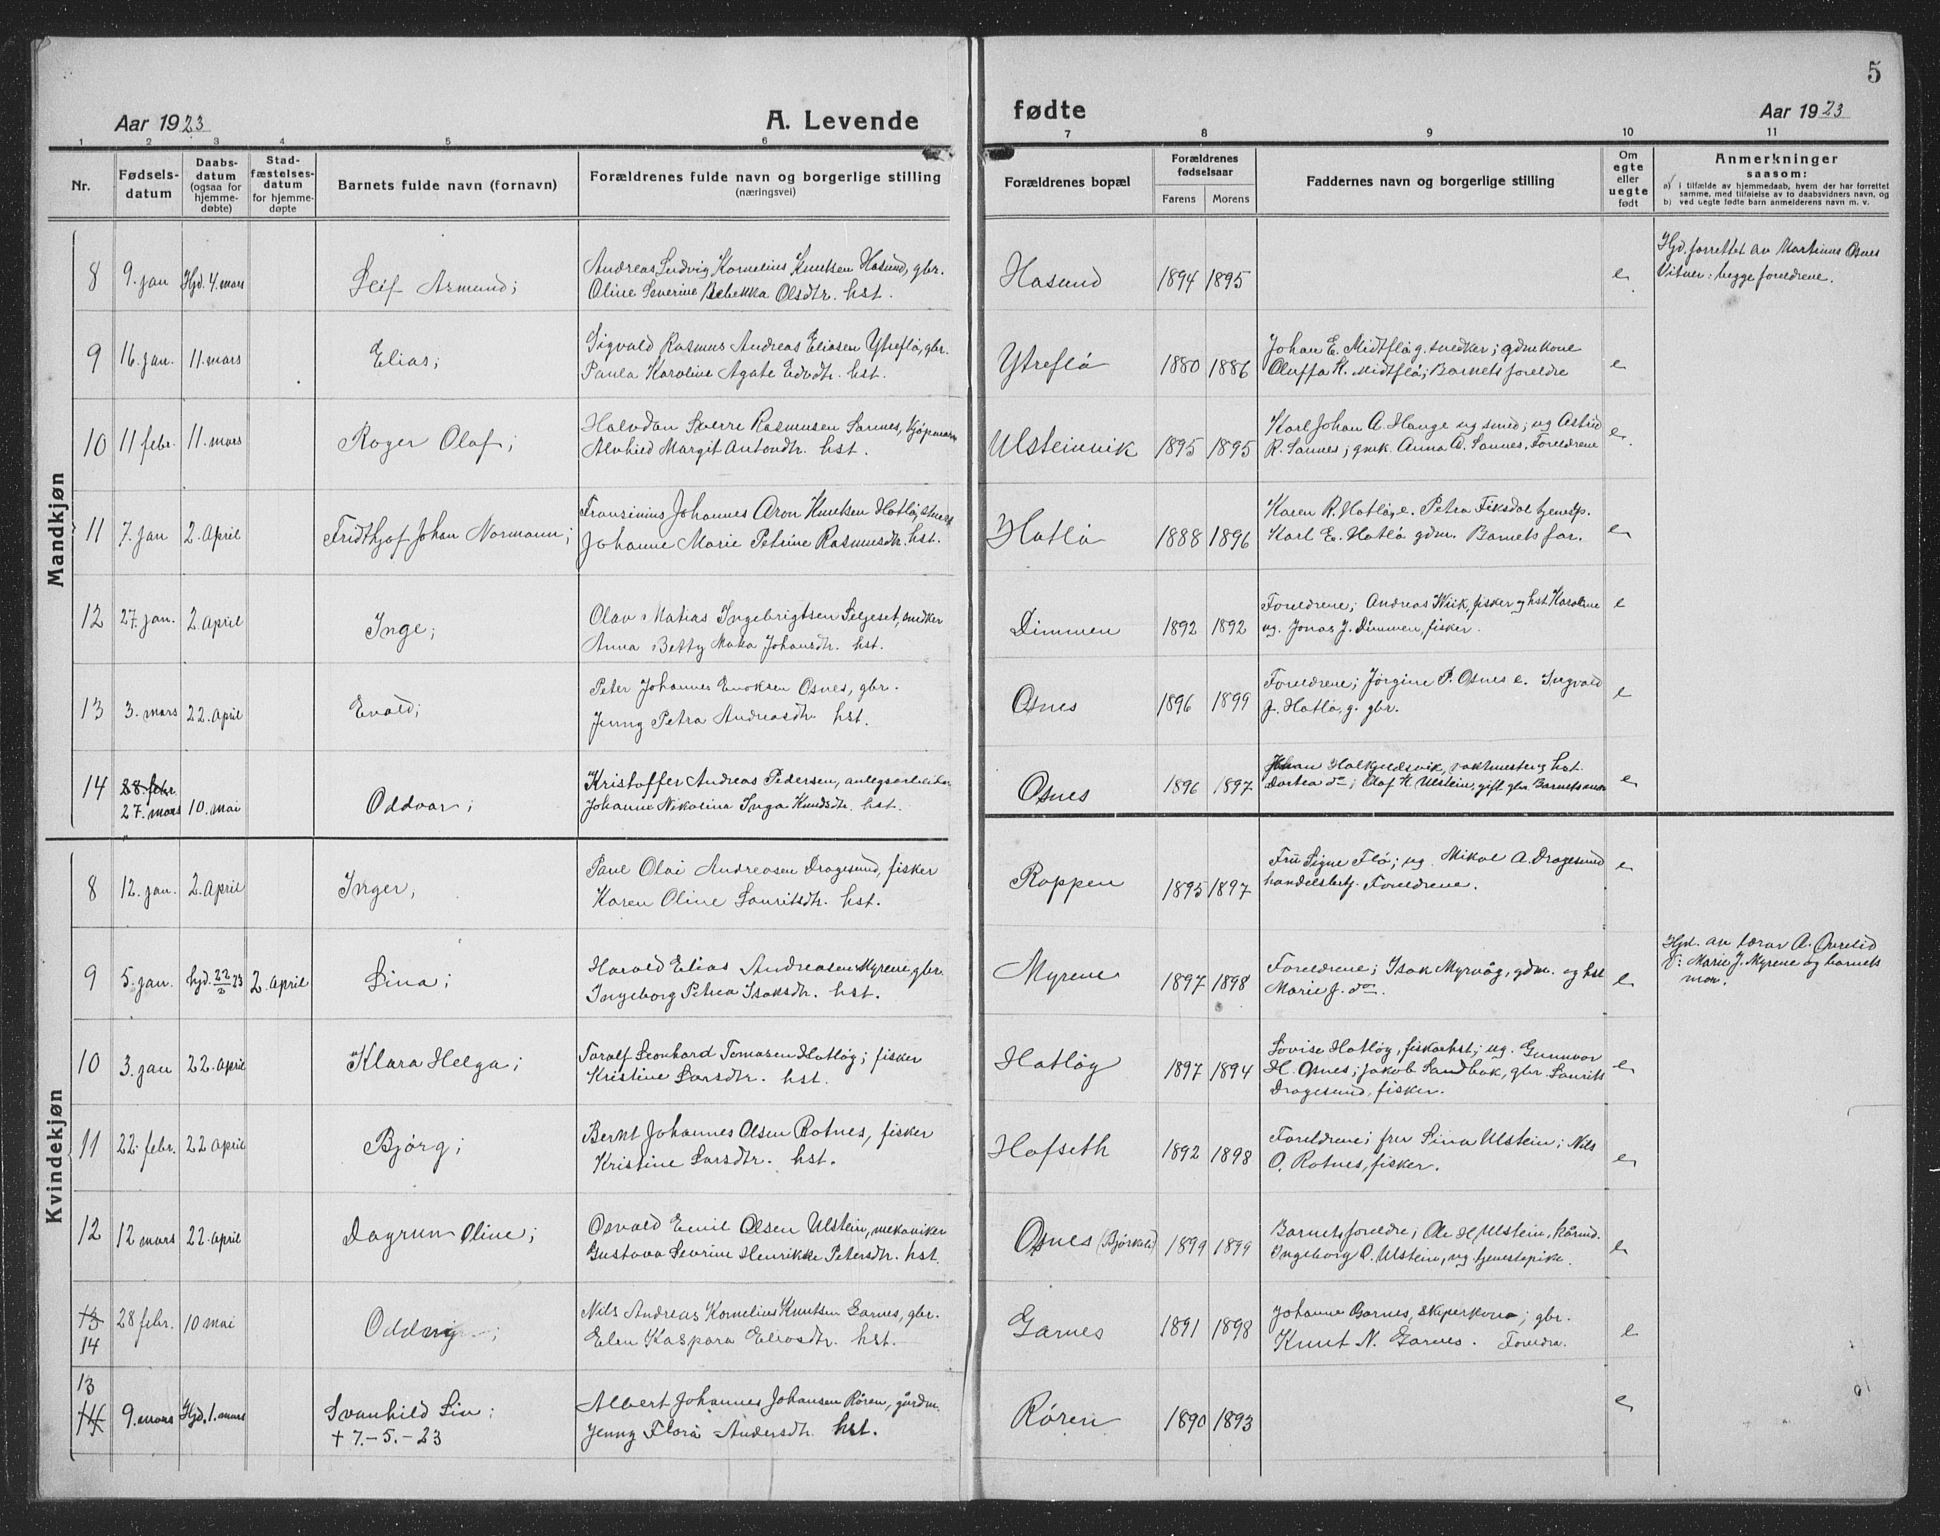 5
Aar 1923
A. Levende
fødte
Aar 1923
1 2 3 4 5 6 7 8 9 10 11
Nr.
Fødsels-
datum
Daabs-
datum
(ogsaa for
hjemme-
døbte)
Stad-
fæstelses-
datum
for hjemme-
døpte
Barnets fulde navn (fornavn)
Forældrenes fulde navn og borgerlige stilling
(næringsvei)
Forældrenes bopæl
Forældrenes
fødselsaar
Farens Morens
Faddernes navn og borgerlige stilling
Om
egte
eller
uegte
født
Anmerkninger
saasom:
a) i tilfælde av hjemmedaab, hvem der har forrettet
samme, med tilføielse av to daabsvidners navn, og
b) ved uegte fødte barn anmelderens navn m. v.
Mandkjøn
8 9. jan Hjd. 4. mars Leif Asmund;
Andreas Ludvig Kornelius Knutsen Hasund, gbr.
Oline Severine Rebekka Olsdtr. hst.
Hasund 1894 1895 e
Hjd. forrettet av Martinus Osnes
Vitner: begge foreldrene.
9 16. jan. 11. mars Elias;
Sigvald Rasmus Andreas Eliasen Ytreflø, gbr.
Paula Karoline Agate Edvdtr. hst.
Ytreflø 1880 1886
Johan E. Midtflø g. snedker; gdmkone
Oluffa K. Midtflø; Barnets foreldre
e
10 11 febr. 11. mars Roger Olaf;
Halvdan Sverre Rasmusen Sannes, kjøpmann
Alvhild Margit Antondtr. hst.
Ulsteinvik 1895 1895
Karl Johan A. Hauge ug smed; ug Astrid
R. Sannes; gmk. Anna A. Sannes. Foreldrene
e.
11 7. jan 2. April Fridthjof Johan Normann;
Fransinius Johannes Aron Knutsen Hatlø,
Johanne Marie Petrine Rasmusdtr. hst.
Hatlø 1888 1896
Karen R. Hatlø, e. Petra Fiksdal tjenesp.
Karl E. Hatlø gdm. Barnets far.
e
12 27. jan. 2. April Inge;
Olav Matias Ingebrigtsen Seljeset, snidker
Anna Betty Maka Johansdtr. hst.
Dimmen 1892 1892
Foreldrene; Andreas Wiik, fisker og hst Karoline
ug. Jonas J. Dimmen, fisker.
e
13 3. mars 22. April Evald;
Peter Johannes Enoksen Osnes, gbr.
Jenny Petra Andreasdtr hst.
Osnes 1896 1899
Foreldrene; Jørgine P. Osnes e. Ingvald
J. Hatlø, g. gbr.
e
14 28. febr.
27. mars 10. mai Oddvar;
Kristoffer Andreas Pedersen, anlegsarbeider
Johanne Nikolina Inga Knudsdtr. hst.
Osnes 1896 1897
Johan Halkjeldsvik, vaktmester og hst.
Dortea do; Olaf K. Ulstein, gift gbr Barnets mor
e
Kvindekjøn
8 12. jan. 2. April Inger;
Paul Olai Andreasen Dragesund, fisker
Karen Oline Lauritsdtr. hst.
Roppen 1895 1897
Fru Signe Flø; ug. Mikal A. Dragesund
handelsbetj. Foreldrene.
e
9 5. jan. hjd. 22/2 23 2. April Lina;
Harald Elias Andreasen Myrene, gbr.
Ingeborg Petra Isaksdtr. hst.
Myrene 1897 1898
Foreldrene; Isak Myrvåg, gdm. og hst
Marie J. do.
e
Hjd. av lærar A. Øvrelid
V: Marie J. Myrene og barnets
mor.
10 3. jan 22. April Klara Helga;
Toralf Leonhard Tomasen Hatløy; fisker
Kristine Larsdtr. hst.
Hatløy 1897 1894
Lovise Hatløy, fiskarhst; ug. Gunnvor
H. Osnes; Jakob Sandbak, gbr. Laurits
Dragesund, fisker.
e
11 22. febr. 22 April Bjørg;
Bernt Johannes Olsen Rotnes, fisker
Kristine Larsdtr. hst.
Hofseth 1892 1898
Foreldrene; fru Lina Ulstein; Nils
O. Rotnes, fisker.
e
12 12 mars 22. April Dagrun Oline;
Osvald Emil Olsen Ulstein, mekaniker
Gustava Sevrine Henrikke Petersdtr. hst.
Osnes (Bjørkeli) 1899 1899
Barnets foreldre; Ole H. Ulstein, kårmd.
Ingeborg O. Ulstein, ug tjenestepike.
e
13
14 28 febr. 10 mai Oddny;
Nils Andreas Kornelius Knutsen Garnes, gbr.
Elen Kaspara Eliasdtr. hst.
Garnes 1891 1898
Johanne Garnes, skiperkona; gbr.
Knut N. Garnes. Foreldra.
e
13
14 9. mars Hjd. 1. mars Svanhild Liv;
† 7.-5.-23
Albert Johannes Johansen Røren, gårdm.
Jenny Flora Andersdtr. hst.
Røren 1890 1893 e